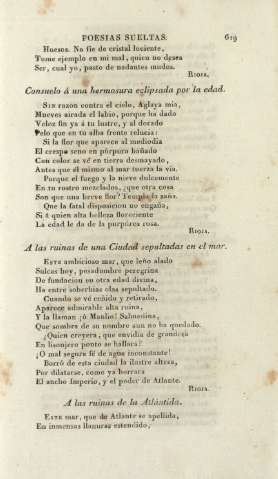 POESIAS SUELTAS. 619
Huesos. No fie de cristal luciente,
Tome ejemplo en mi mal, quien no desea
Ser, cual yo, pasto de nadantes mudos.
RIOJA.
Consuelo á una hermosura eclipsada por la edad.
SIN razon contra el cielo, Aglaya mia,
Mueves airada el labio, porque ha dado
Veloz fin ya á tu lustre, y al dorado
Pelo que en tu alba frente relucia:
Si la flor que aparece al mediodia
El crespo seno en púrpura bañado
Con color se vé en tierra desmayado,
Antes que él mismo al mar tuerza la via.
Porque el fuego y la nieve dulcemente
En tu rostro mezclados, ¿que otra cosa
Son que una breve flor? Templa tu saña.
Que la fatal disposicion no engaña,
Si á quien alta belleza floreciente
La edad le da de la purpúrea rosa.
RIOJA.
A las ruinas de una Ciudad sepultadas en el mar.
ESTE ambicioso mar, que leño alado
Sulcas hoy, pesadumbre peregrina
De fundacion un otra edad divina,
Ha entre soberbias olas sepultado.
Cuando se vé ceñido y retirado,
Aparece admirable alta ruina,
Y la llaman ¡ó Manlio! Salmedina,
Que sombra de su nombre aun no ha quedado.
¿Quien creyera, que envidia de grandeza
En lisonjero ponto se hallara?
¡O mal segura fé de agua inconstante!
Borró de esta ciudad la ilustre alteza,
Por dilatarse, como ya borrara
El ancho Imperio, y el poder de Atlante.
RIOJA.
A las ruinas de la Atlántida.
ESTE mar, que de Atlante se apellida,
En inmensas llanuras estendido,